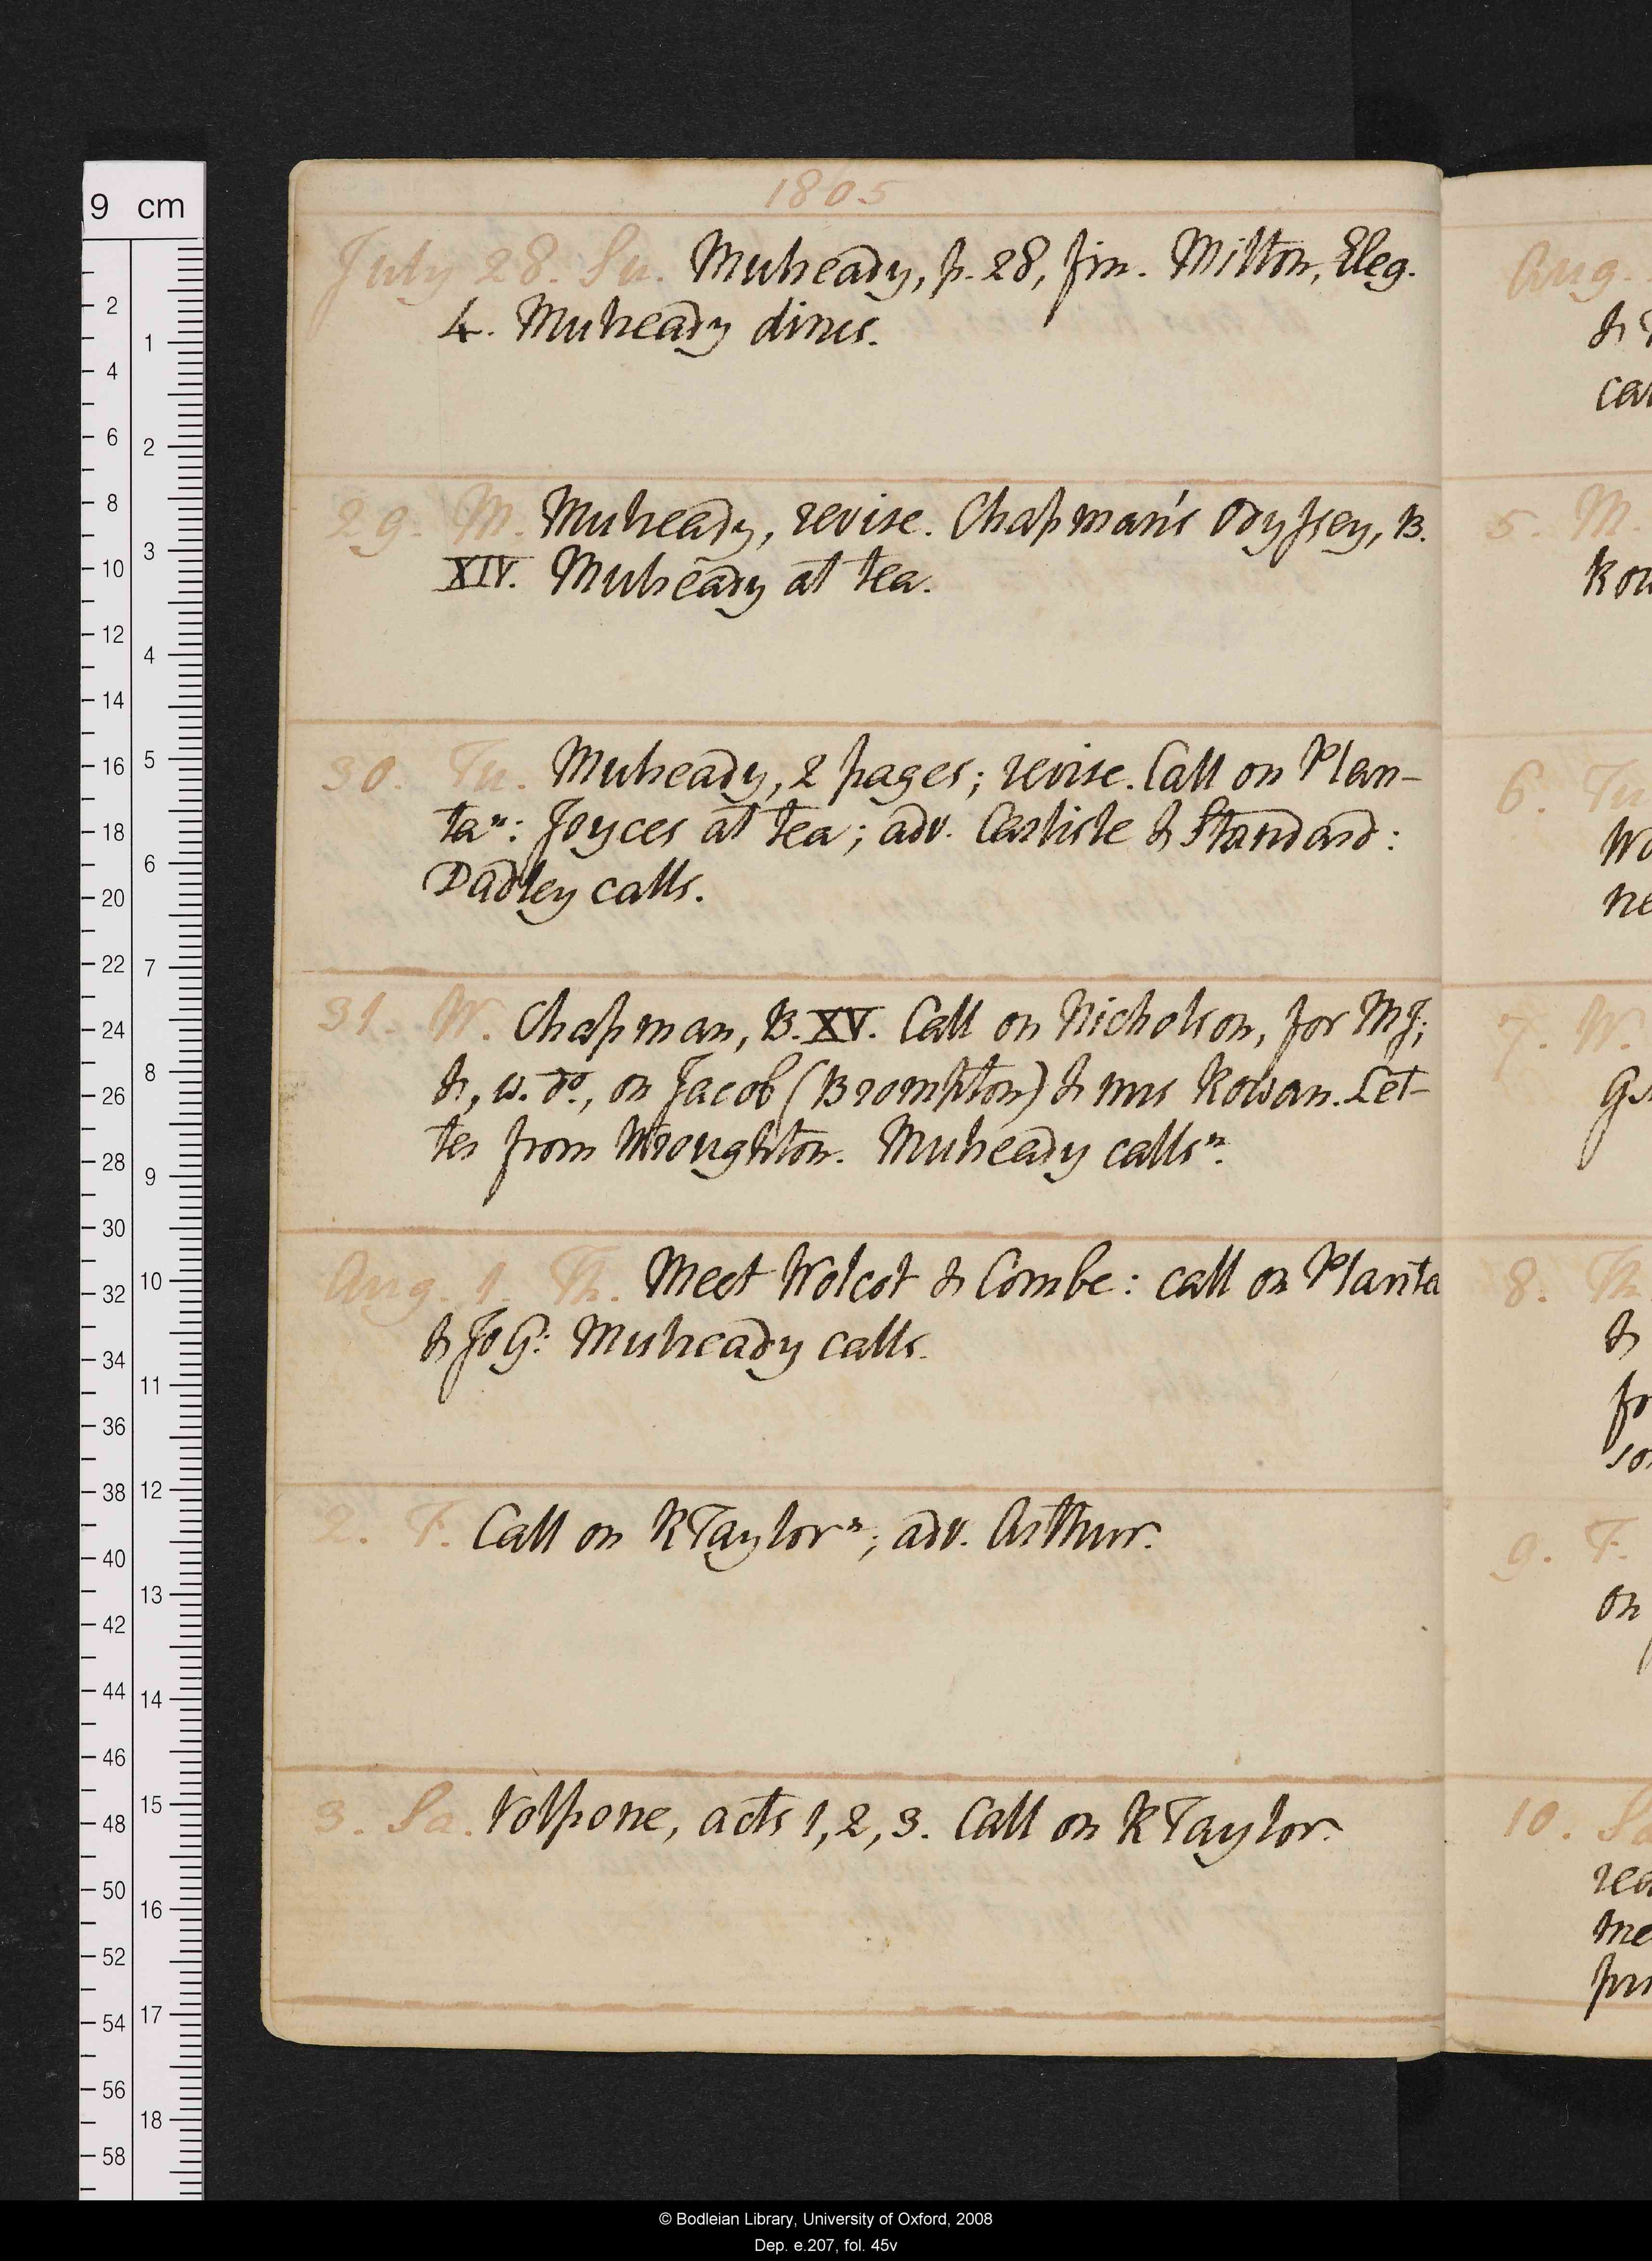 1805
July 28. Su. Mulready, p. 28, fin. Milton, Eleg.
4. Mulready dines.
29. M. Mulready, revise. Chapman's Odyssey, B.
XIV. Mulready at tea.
30. Tu. Mulready, 2 pages; revise. Call on Plan-
taⁿ: Joyces at tea; adv. Carlisle & Standard:
Dadley calls.
31. W. Chapman, B. XV. Call on Nicholson, for MJ;
&, w. dº., on Jacob (Brompton) & mrs Rowan. Let-
ter from Wroughton. Mulready callsⁿ.
Aug. 1. Th. Meet Wolcot & Combe: call on Planta
& JoG: Mulready calls.
2. F. Call on RTaylorⁿ; adv. Arthur.
3. Sa. Volpone, acts 1, 2, 3. Call on RTaylor.
Aug.
&
5. M.
6. Tu
7. W.
8. Th
&
9. F.
on
10. Sa
9 cm
2
4
6
8
10
12
14
16
18
20
22
24
26
28
30
32
34
36
38
40
42
44
46
48
50
52
54
56
58
1
2
3
4
5
6
7
8
9
10
11
12
13
14
15
16
17
18
© Bodleian Library, University of Oxford, 2008
Dep. e.207, fol. 45v